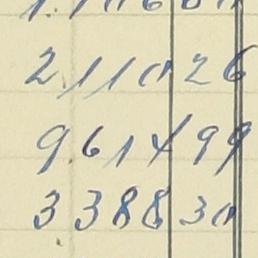 2,110 26
9.614 99
3388 30